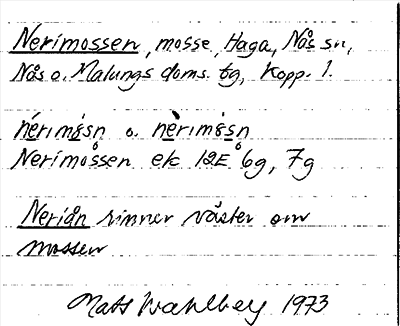 Nerimossen, mosse, Haga, Nås sn,
Nås o. Malungs doms. tg, Kopp. l.
nérimå̀sn o. nèrimå̀sn
Nerimossen ek 12E 6g, 7g
Neriån rinner väster om
mossen
Mats Wahlberg 1973